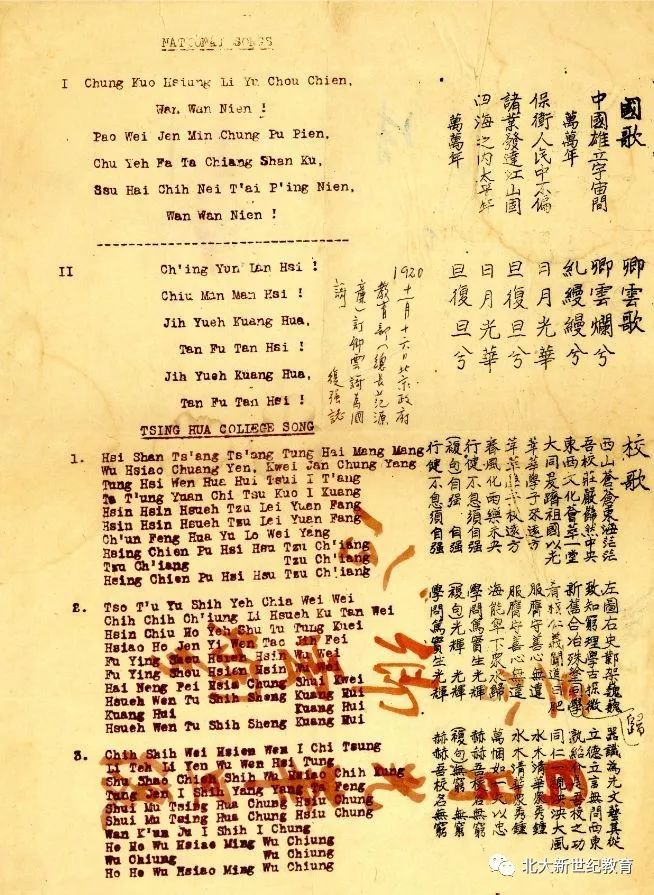 NATIONAL SONGS
I Chung Kuo Hsiung Li Yu Chou Chien,
Wan Wan Nien !
Pao Wei Jen Min Chung Pu Pien,
Chu Yeh Fa Ta Chiang Shan Ku,
Ssu Hai Chih Nei T'ai P'ing Nien,
Wan Wan Nien !
國歌
中國雄立宇宙間
萬萬年
保衛人民中不偏
諸業發達江山國
四海之內太平年
萬萬年
II Ch'ing Yun Lan Hsi !
Chiu Man Man Hsi !
Jih Yueh Kuang Hua,
Tan Fu Tan Hsi !
Jih Yueh Kuang Hua,
Tan Fu Tan Hsi !
卿雲歌
卿雲爛兮
糺縵縵兮
日月光華
旦復旦兮
日月光華
旦復旦兮
1920
十一月十六日北京政府
教育部(總長范源
廉)訂卿雲詩為國
詩
TSING HUA COLLEGE SONG
1. Hsi Shan Ts'ang Ts'ang Tung Hai Mang Mang
Wu Hsiao Chuang Yen, Kwei Jan Chung Yang
Tung Hsi Wen Hua Hui Tsui I T'ang
Ta T'ung Yuan Chi Tsu Kuo I Kuang
Hsin Hsin Hsueh Tzu Lei Yuan Fang
Hsin Hsin Hsueh Tzu Lei Yuan Fang
Ch'un Feng Hua Yu Lo Wei Yang
Hsing Chien Pu Hsi Hsu Tzu Ch'iang
Tzu Ch'iang Tzu Ch'iang
Hsing Chien Pu Hsi Hsu Tzu Ch'iang
校歌
西山蒼蒼東海茫茫
吾校莊嚴巋然中央
東西文化薈萃一堂
大同爰躋祖國以光
莘莘學子來遠方
莘莘學子來遠方
春風化雨樂未央
行健不息須自强
(複句)自强 自强
行健不息須自强
2. Tso T'u Yu Shih Yeh Chia Wei Wei
Chih Chih Ch'iung Li Hsueh Ku Tan Wei
Hsin Chiu Ho Yeh Shu Tu Tung Kuei
Hsiao Ho Jen Yi Wen Tao Jih Fei
Fu Ying Shou Hsueh Hsin Wu Wei
Fu Ying Shou Hsien Hsin Wu Wei
Hai Neng Pei Hsia Chung Shui Kwei
Hsueh Wen Tu Shih Sheng Kuang Hui
Kuang Hui Kuang Hui
Hsueh Wen Tu Shih Sheng Kuang Hui
左圖右史鄴架巍巍
致知窮理學古探微
新舊合冶殊途同學
歸
肴核仁義聞道日肥
服膺守善心無違
服膺守善心無違
海能卑下衆水歸
學問篤實生光輝
(複句)光輝 光輝
學問篤實生光輝
3. Chih Shih Wei Hsien Wen I Chi Tsung
Li Teh Li Yen Wu Wen Hsi Tung
Shu Shao Chieh Shih Wu Hsiao Chih Kung
Tung Jen I Shih Yang Yang Ta Feng
Shui Mu Tsing Hua Chung Hsiu Chung
Shui Mu Tsing Hua Chung Hsiu Chung
Wan K'un Ju I Shih I Chung
Ho Ho Wu Hsiao Ming Wu Chiung
Wu Chiung Wu Chiung
Ho Ho Wu Hsiao Ming Wu Chiung
器識為先文藝其從
立德立言無問西東
孰紹介是吾校之功
同仁一視泱泱大風
水木清華衆秀鍾
水木清華衆秀鍾
萬悃如一矢以忠
赫赫吾校名無窮
(複句)無窮 無窮
赫赫吾校名無窮
北大新世纪教育